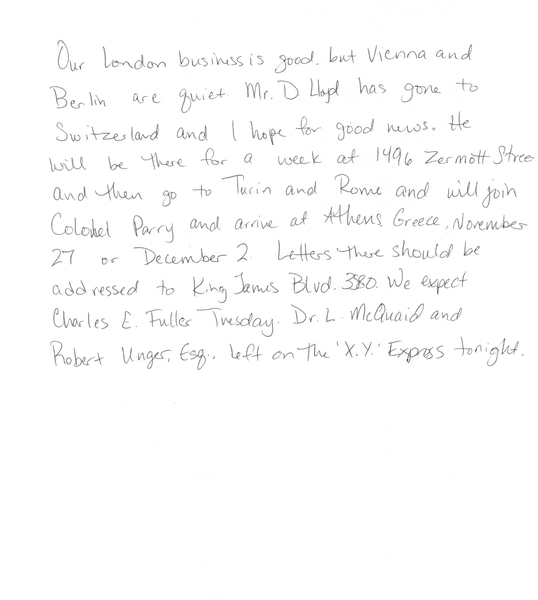 Our London business is good, but Vienna and
Berlin are quiet. Mr. D Lloyd has gone to
Switzerland and I hope for good news. He
will be there for a week at 1496 Zermott Street
and then go to Turin and Rome and will join
Colonel Parry and arrive at Athens Greece, November
27 or December 2. Letters there should be
addressed to King James Blvd. 3580. We expect
Charles E. Fuller Tuesday. Dr. L. McQuaid and
Robert Unger, Esq., left on the 'X.Y.' Express tonight.